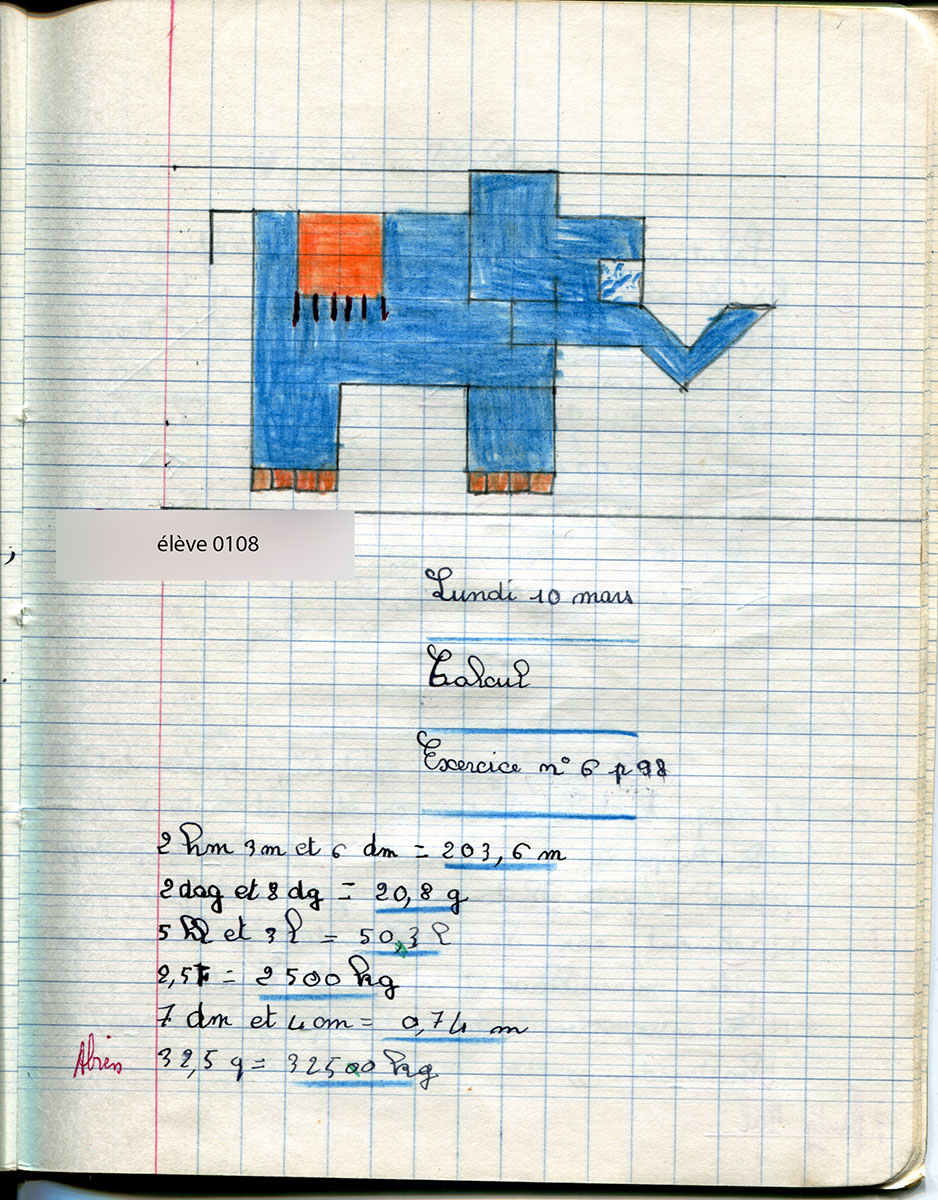 élève 0108
Lundi 10 mars
Calcul
Exercice n° 6 p 98
2 hm 3 m et 6 dm = 203,6 m
2 dag et 8 dg = 20,8 g
5 hl et 3 l = 50,3 l
2,5 T = 2500 kg
7 dm et 4 cm = 0,74 m
32,5 q = 32500 kg